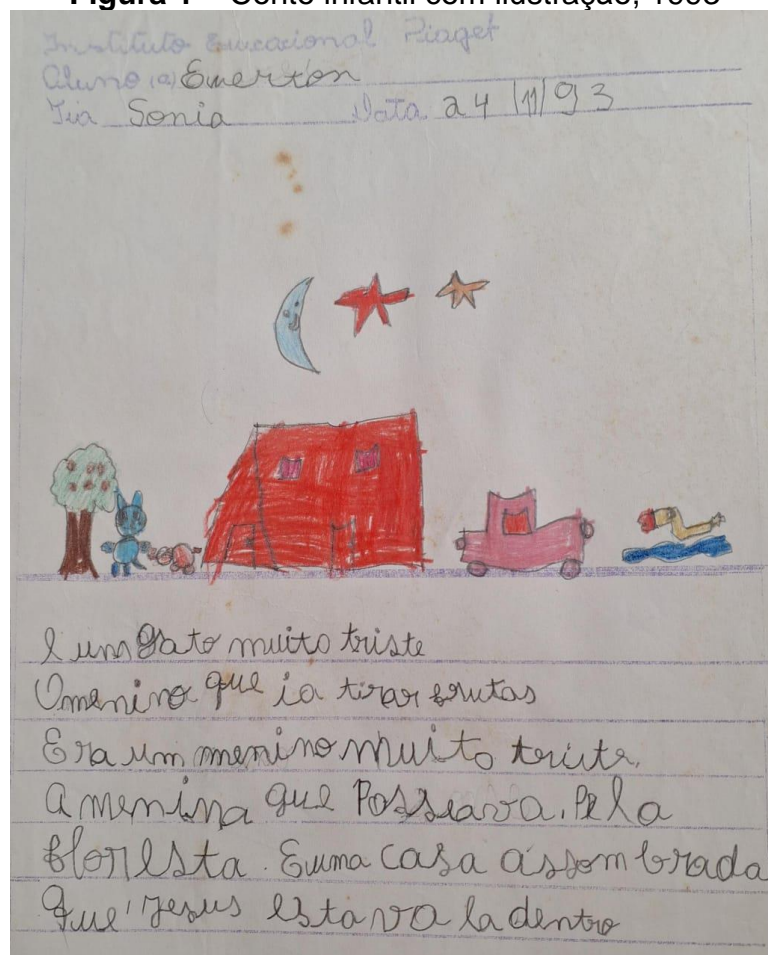 Figura 1 – Conto infantil com ilustração, 1993
Instituto Educacional Piaget
Aluno (a) Emerton
Tia Sonia Data 24/11/93
E um gato muito triste
O menino que ia tirar frutas
Era um menino muito triste.
A menina que Passeava. Pela
floresta. E uma casa assombrada
que Jesus estava la dentro